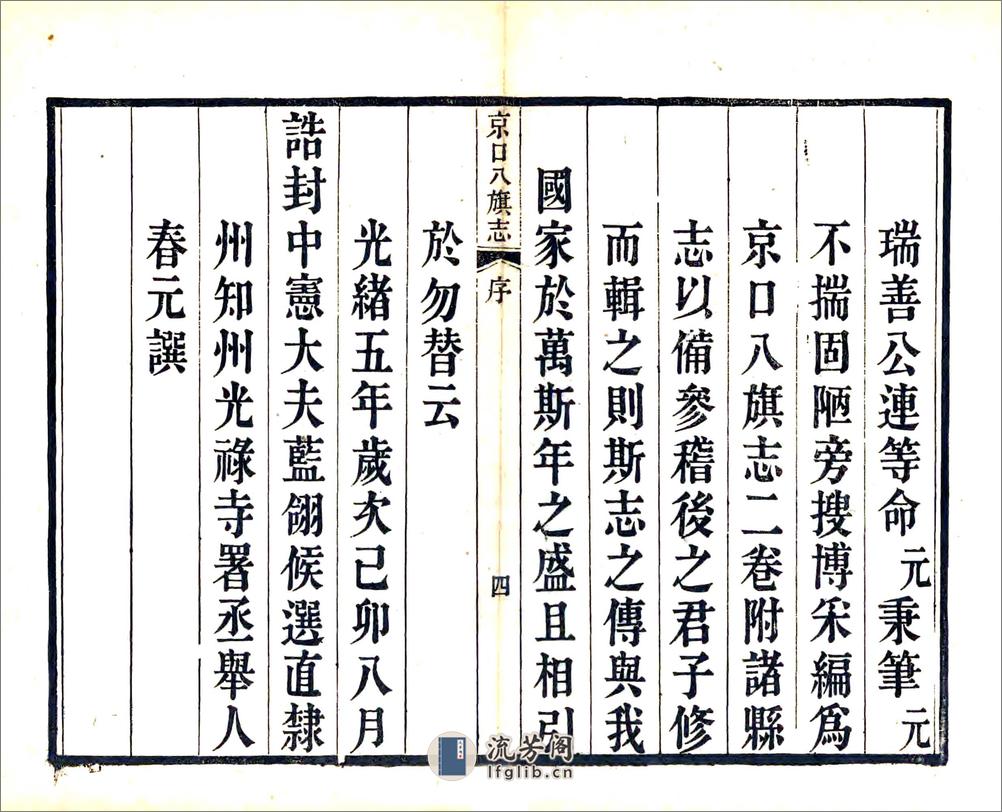 瑞善公連等命元秉筆元
不揣固陋旁搜博采編爲
京口八旗志二卷附諸縣
志以備參稽後之君子修
而輯之則斯志之傳與我
國家於萬斯年之盛且相引
京口八旗志 序 四
於勿替云
光緒五年歲次己卯八月
誥封中憲大夫藍翎候選直隸
州知州光祿寺署丞舉人
春元譔
流芳阁
lfglib.cn